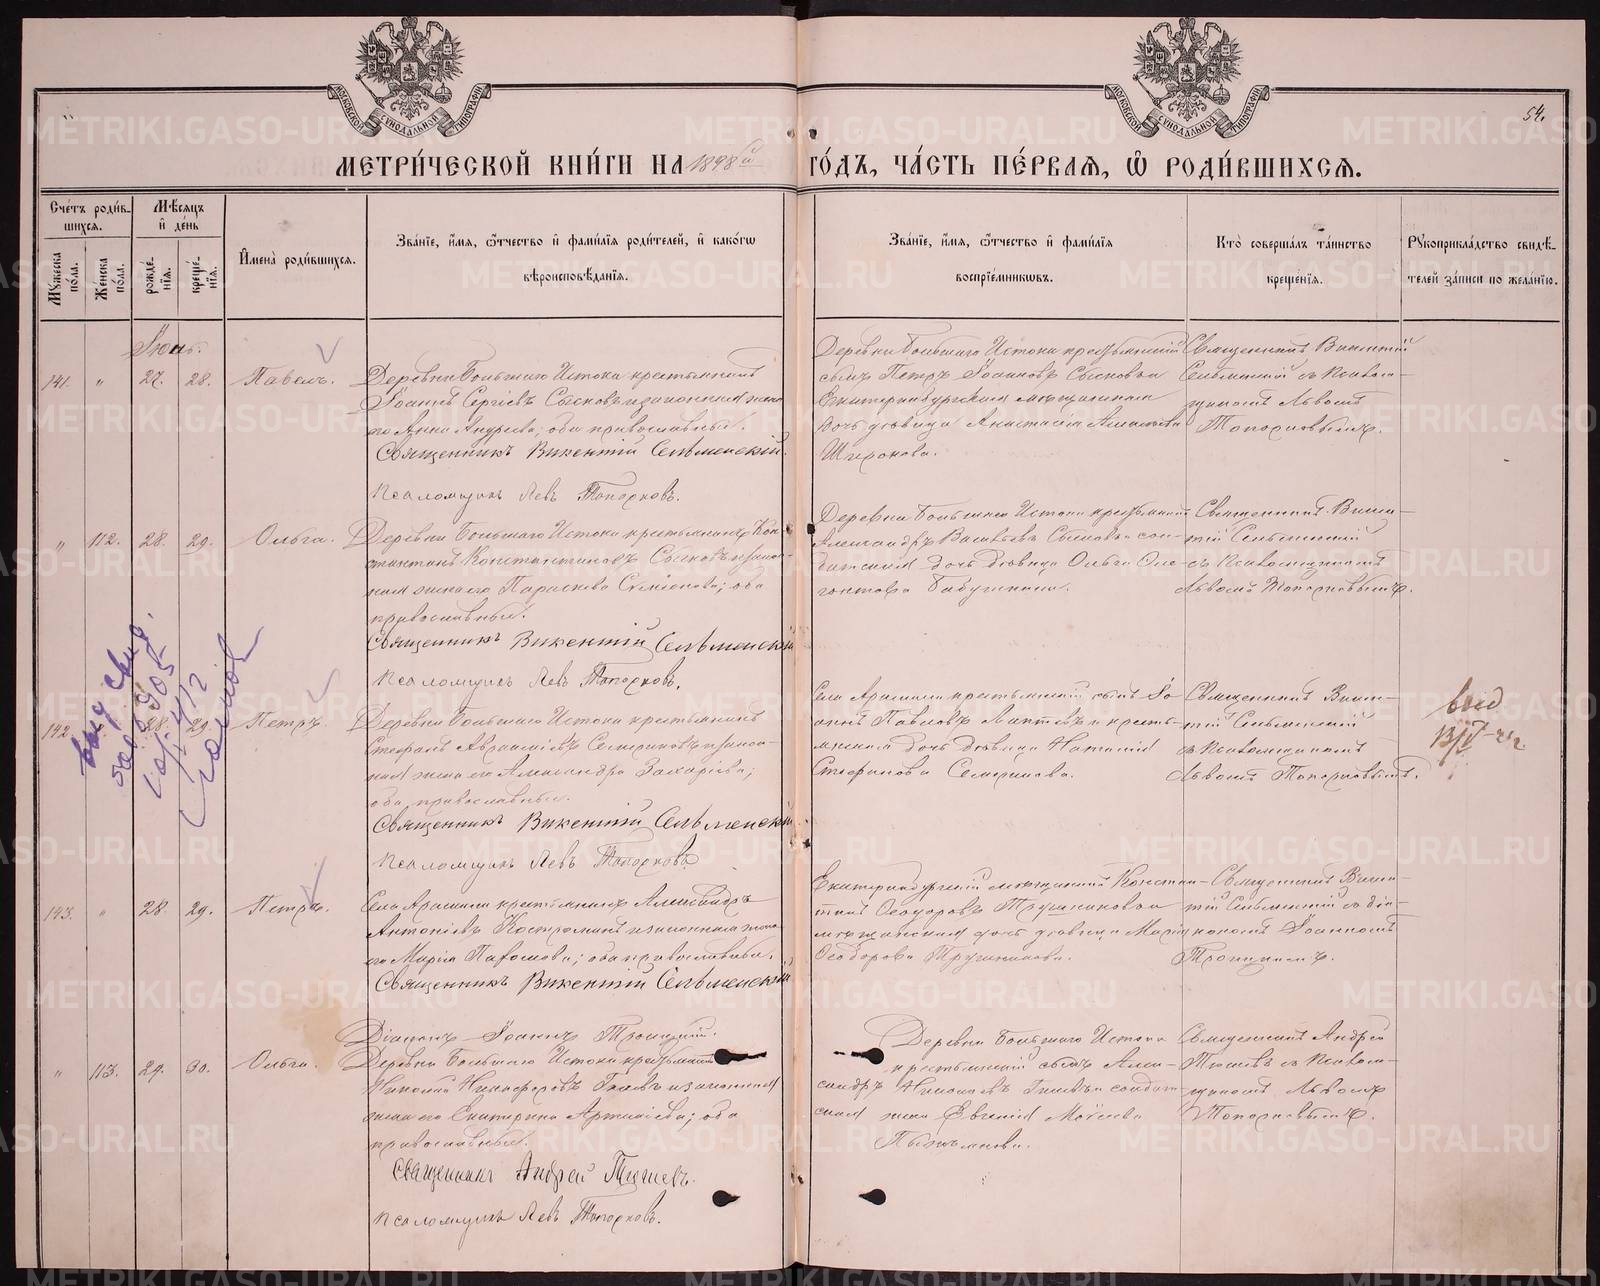 МОСКОВСКОЙ СѴНОДАЛЬНОЙ ТИПОГРАФІИ
МОСКОВСКОЙ СѴНОДАЛЬНОЙ ТИПОГРАФІИ
54.
МЕТРИ́ЧЕСКОЙ КНИ́ГИ НА 1898й ГО́ДЪ, ЧА́СТЬ ПЕ́РВАЯ, Ѽ РОДИ́ВШИХСЯ.
Счéтъ роди́в-
шихся.
Мѣ́сяцъ
и̂ де́нь
Мꙋ́жеска по́ла.
Же́нска по́ла.
рожде́-
нїя.
креще́-
нїя.
И̂мена̀ роди́вшихся.
Зва́нїе, и̂́мя, ѻ̂́тчество и̂ фами́лїя роди́телей, и̂ како́гѡ
вѣроисповѣ́данїя.
Зва́нїе, и̂́мя, ѻ̂́тчество и̂ фами́лїя
воспрїе́мникѡвъ.
Кто̀ соверша́лъ та́инство
креще́нїя.
Рꙋкоприкла́дство свидѣ́-
телей за́писи по жела́нїю.
Іюнь.
141. " 27. 28. Павелъ.
Деревни Большаго Истока крестьянинъ
Іоаннъ Сергіевъ Сысковъ и законная жена
его Анна Андреева; оба православные.
Священникъ Викентій Сельменскій.
Псаломщикъ Левъ Топорковъ.
Деревни Большаго Истока крестьянскій
сынъ Петръ Іоанновъ Сысковъ и
Екатеринбургская мѣщанская
дочь дѣвица Анастасія
Широкова.
Священникъ Викентій
Сельменскій съ Псалом-
щикомъ Львомъ
Топорковымъ.
" 112. 28. 29. Ольга.
Деревни Большаго Истока крестьянинъ Кон-
стантинъ Константиновъ Сысковъ и закон-
ная жена его Параскева Симеонова; оба
православные.
Священникъ Викентій Сельменскій
Псаломщикъ Левъ Топорковъ.
Деревни Большаго Истока крестьянинъ
Александръ Васильевъ Сысковъ и сол-
датская дочь дѣвица Ольга
Бабушкина.
Священникъ Викен-
тій Сельменскій
съ Псаломщикомъ
Львомъ Топорковымъ.
142. " 28. 29. Петръ.
Деревни Большаго Истока крестьянинъ
Стефанъ Авраамовъ Семериковъ и закон-
ная жена его Александра Захаріева;
оба православные.
Священникъ Викентій Сельменскій
Псаломщикъ Левъ Топорковъ
Села Арамили крестьянскій сынъ Іо-
аннъ Павловъ Лаптевъ и кресть-
янская дочь дѣвица Наталія
Стефанова Семерикова.
Священникъ Викен-
тій Сельменскій
съ Псаломщикомъ
Львомъ Топорковымъ.
143. " 28. 29. Петръ.
Села Арамили крестьянинъ Александръ
Антоніевъ Костроминъ и законная жена
его Марія Пафомова; оба православные.
Священникъ Викентій Сельменскій
Діаконъ Іоаннъ Троицкій.
Екатеринбургскій мѣщанинъ Констан-
тинъ Ѳеодоровъ Трушниковъ и
мѣщанская дочь дѣвица Марія
Ѳеодорова Трушникова.
Священникъ Викен-
тій Сельменскій съ діа-
кономъ Іоанномъ
Троицкимъ.
" 113. 29. 30. Ольга.
Деревни Большаго Истока крестьянинъ
Николай Никифоровъ Гилевъ и законная
жена его Екатерина Артеміева; оба
православные.
Священникъ Андрей Тюшевъ.
Псаломщикъ Левъ Топорковъ.
Деревни Большаго Истока
крестьянскій сынъ Алек-
сандръ Николаевъ Гилевъ и солдат-
ская жена Евгенія Моисеева
Священникъ Андрей
Тюшевъ съ Псалом-
щикомъ Львомъ
Топорковымъ.
METRIKI.GASO-URAL.RU